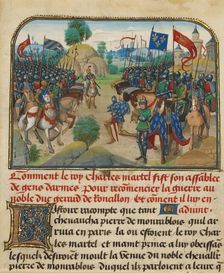 Comment le roy Charles martel fist son assamblee
de gens darmes Pour recomencier la guerre au
noble duc gerard de Roncillon Et coment il luy en
Listoire racompte que tant aduint
cheuaucha pierre de montrablois quil ar
riua en paris la ou estoient le roy Char
les martel et maint prince a luy obeissa
lesquelz desiroient moult la venue du noble cheualli
pierre de montrablois Duquel ilz parloient a leurs